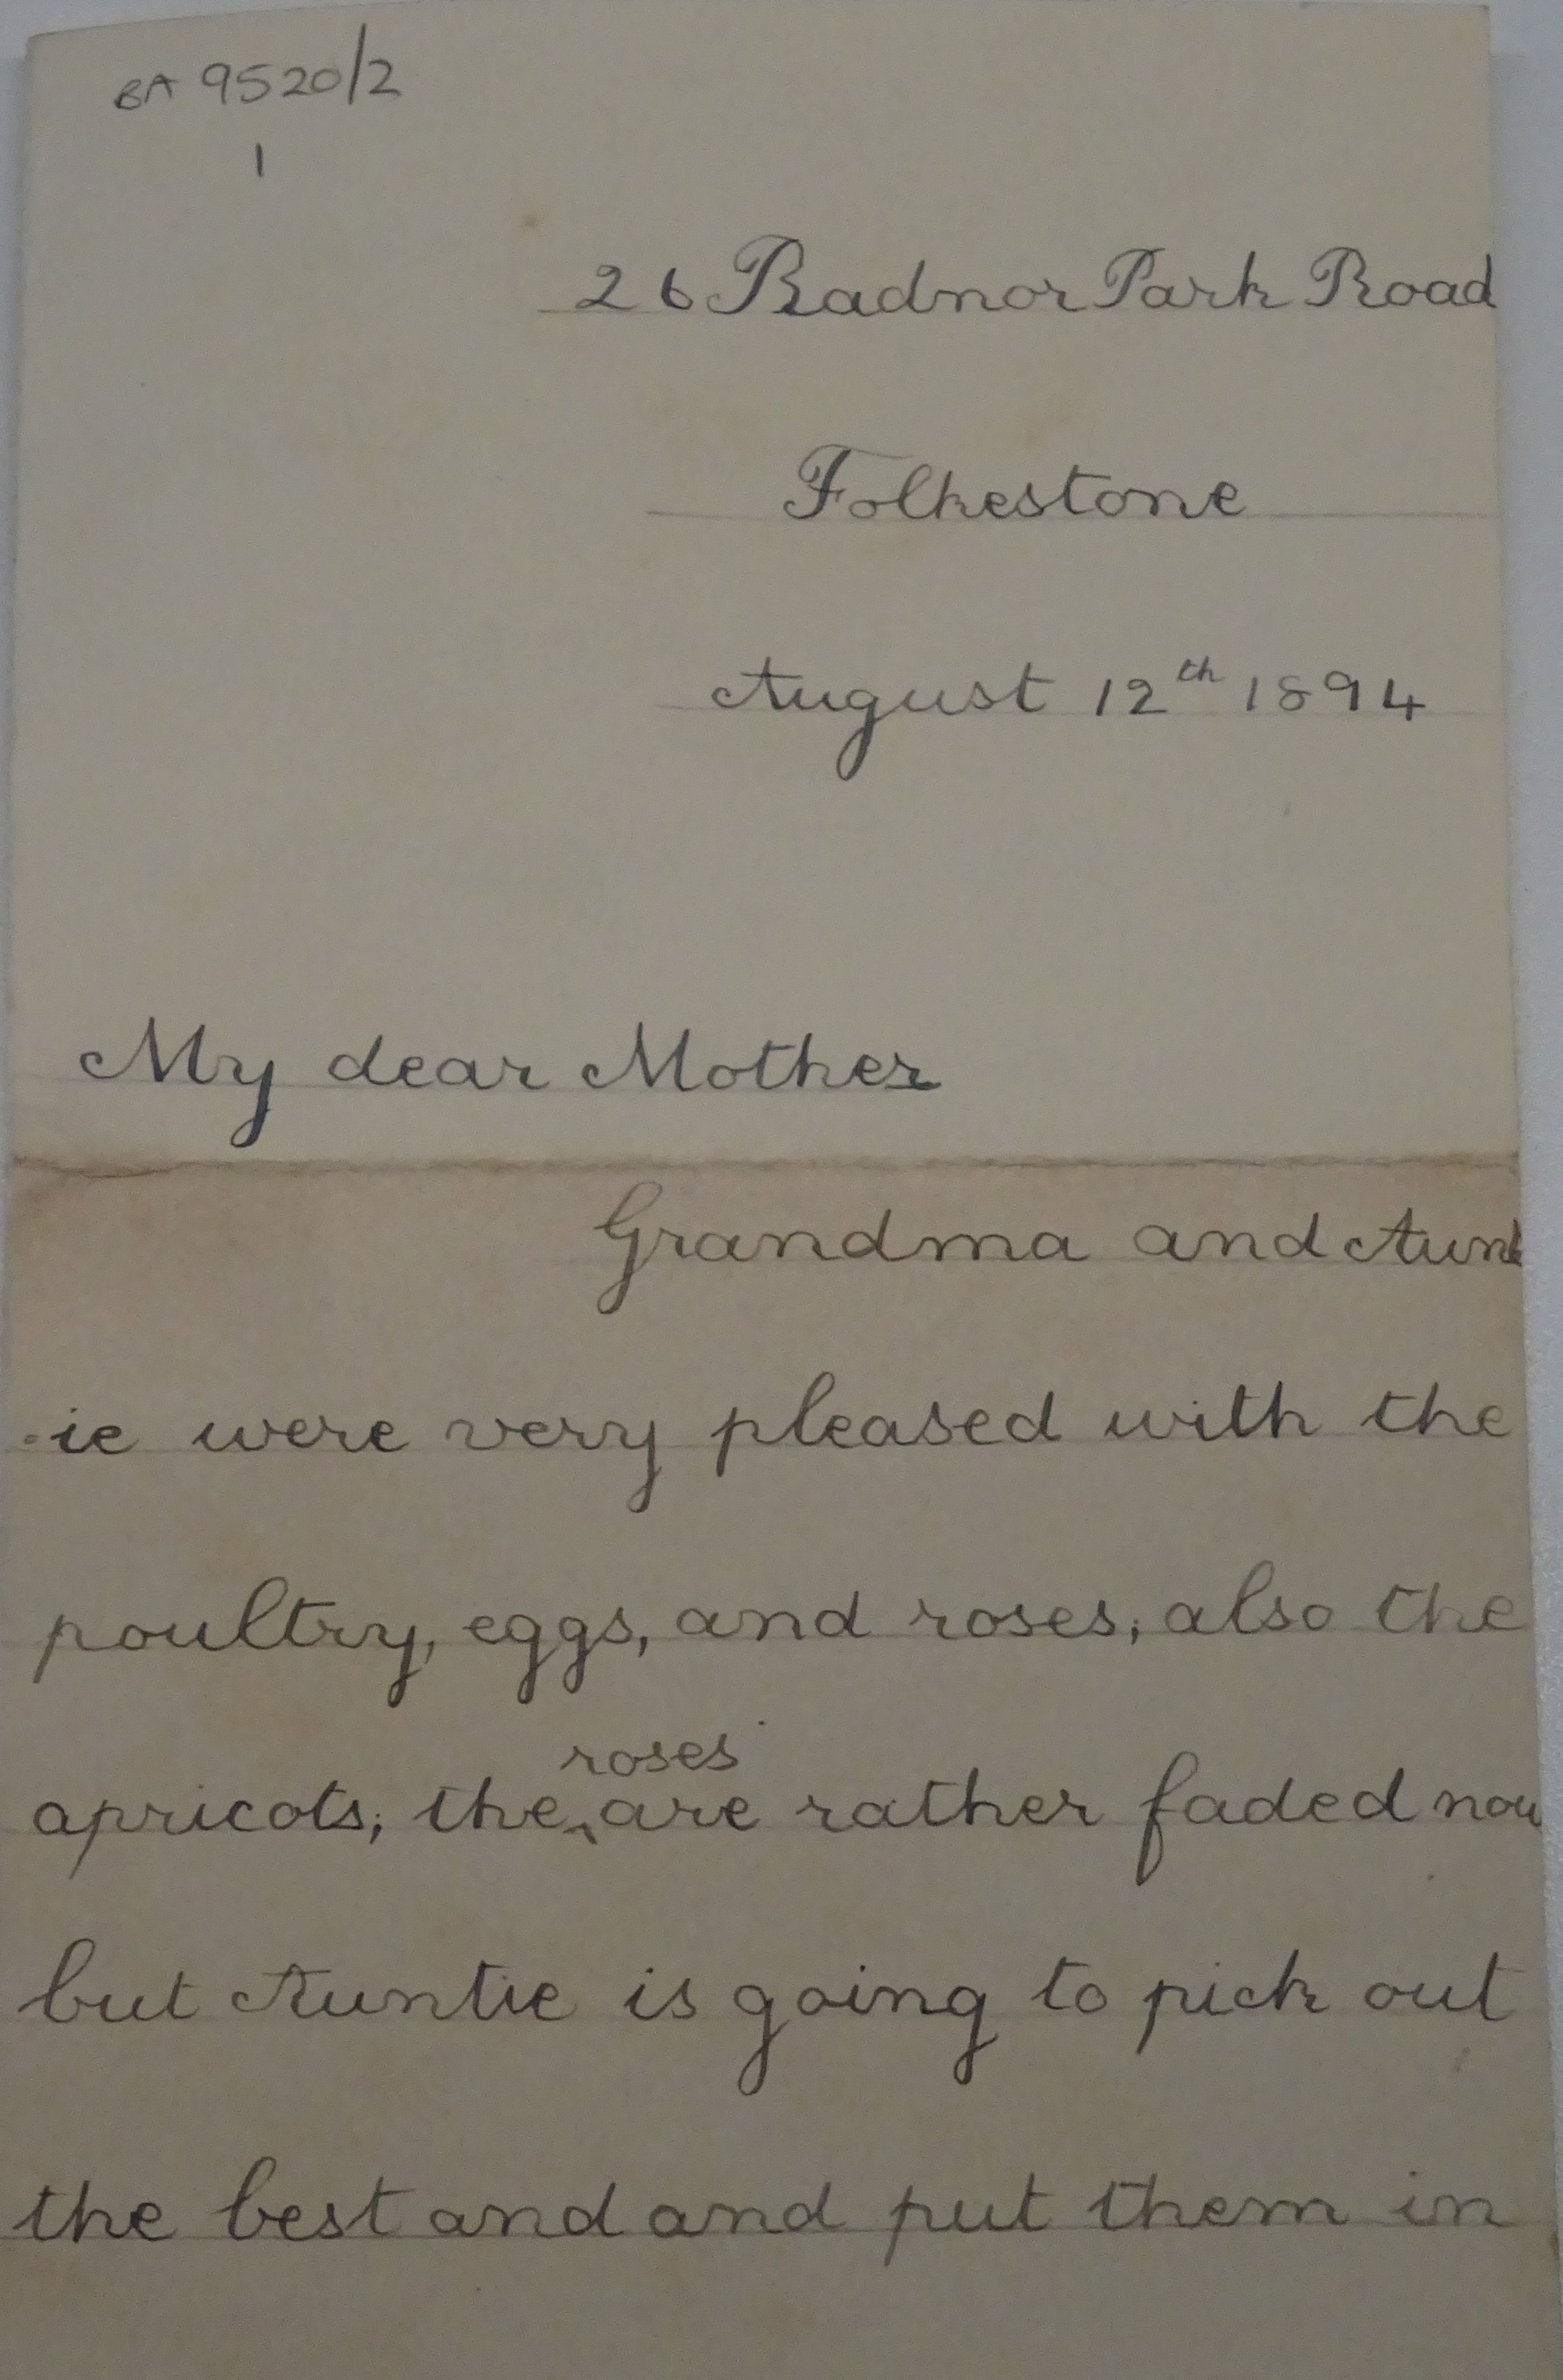 BA 9520/2
1
26 Radnor Park Road
Folkestone
August 12th 1894
My dear Mother
Grandma and Aunt
-ie were very pleased with the
poultry, eggs, and roses, also the
roses
apricots; the ‸ are rather faded now
but Auntie is going to pick out
the best and and put them in